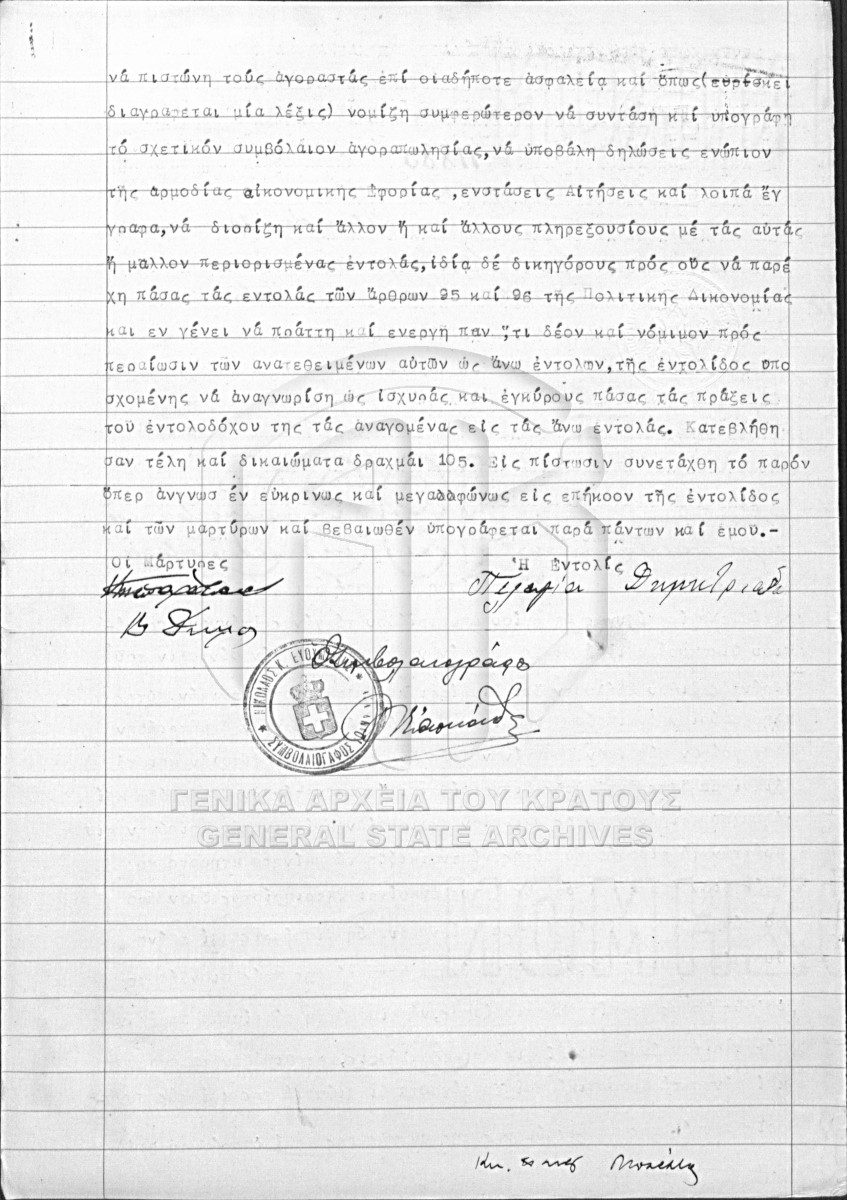 νά πιστώνη τούς ἀγοραστάς ἐπί οιαδήποτε ἀσφαλεία καί ὅπως(ευρίσκει
διαγράφεται μία λέξις) νομίζη συμφερώτερον νά συντάση καί υπογράφη
τό σχετικόν συμβόλαιον ἀγοραπωλησίας,νά ὑποβάλη δηλώσεις ενώπιον
τῆς αρμοδίας οἰκονομικης Εφορίας ,ενστάσεις Αἰτήσεις καί λοιπά ἔγ
γραφα,νά διορίζη καί ἄλλον ἤ καί ἄλλους πληρεξουσίους μέ τάς αὐτάς
ἤ μαλλον περιορισμένας ἐντολάς,ἰδία δέ δικηγόρους πρός οὕς νά παρέ
χη πάσας τάς εντολάς τῶν ἄρθρων 95 καί 96 τῆς Πολιτικῆς Δικονομίας
και εν γένει νά πράττη καί ενεργη παν ὅ,τι δέον καί νόμιμον πρός
περαίωσιν τῶν ανατεθειμένων αὐτῶν ὡς ἄνω ἐντολων,τῆς ἐντολίδος υπο
σχομένης νά ἀναγνωρίση ὡς ἰσχυράς και ἐγκύρους πάσας τάς πράξεις
του ἐντολοδόχου της τάς ἀναγομένας εἰς τάς ἄνω ἐντολάς. Κατεβλήθη
σαν τέλη καί δικαιώματα δραχμάι 105. Εἰς πίστωσιν συνετάχθη τό παρόν
ὅπερ ἀνγνωσ ἐν εὐκρινως καί μεγαλοφώνως εἰς ἐπήκοον τῆς ἐντολίδος
καί τῶν μαρτύρων καί βεβαιωθέν ὑπογράφεται παρά πάντων καί εμου.-
Οἱ Μάρτυρες Ἡ Ἐντολίς
Πελαγία Δημητριάδου
Β
Ὁ Συμβολαιογράφος
ΝΙΚΟΛΑΟΣ Κ. ΣΥΜΒΟΛΑΙΟΓΡΑΦΟΣ
ΓΕΝΙΚΑ ΑΡΧΕΙΑ ΤΟΥ ΚΡΑΤΟΥΣ
GENERAL STATE ARCHIVES